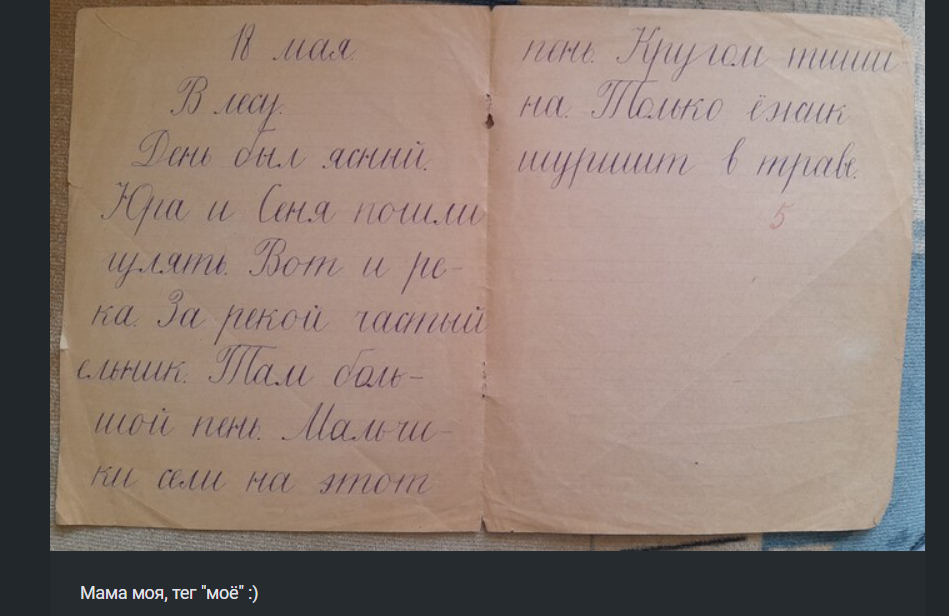 18 мая.
В лесу.
День был ясный.
Юра и Сеня пошли
гулять. Вот и ре-
ка. За рекой частый
ельник. Там боль-
шой пень. Мальчи-
ки сели на этот
пень. Кругом тиши
на. Только ёжик
шуршит в траве.
5
Мама моя, тег "моё" :)